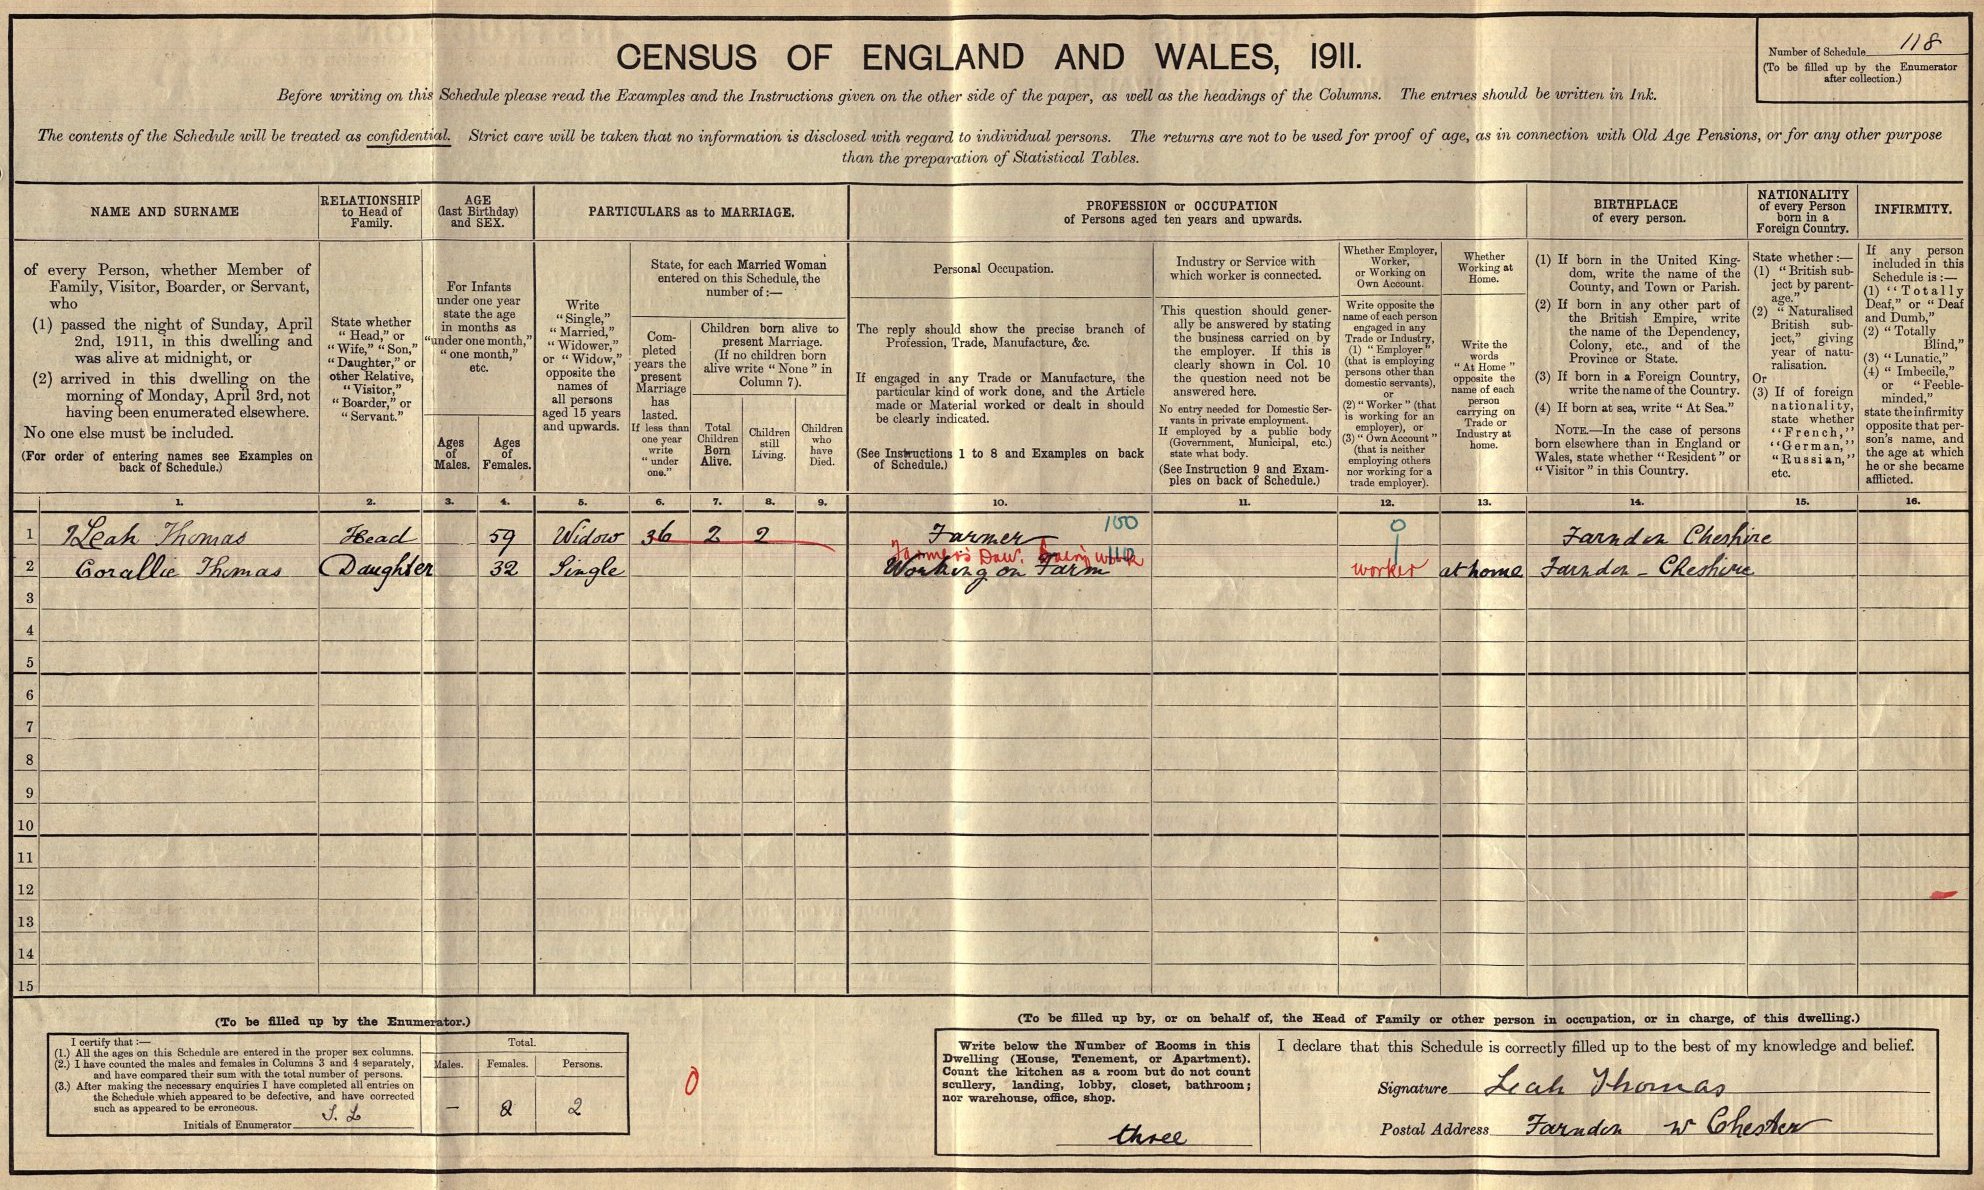 CENSUS OF ENGLAND AND WALES, 1911.
Number of Schedule 118
(To be filled up by the Enumerator
after collection.)
Before writing on this Schedule please read the Examples and the Instructions given on the other side of the paper, as well as the headings of the Columns. The entries should be written in Ink.
The contents of the Schedule will be treated as confidential. Strict care will be taken that no information is disclosed with regard to individual persons. The returns are not to be used for proof of age, as in connection with Old Age Pensions, or for any other purpose
than the preparation of Statistical Tables.
NAME AND SURNAME
of every Person, whether Member of
Family, Visitor, Boarder, or Servant,
who
(1) passed the night of Sunday, April
2nd, 1911, in this dwelling and
was alive at midnight, or
(2) arrived in this dwelling on the
morning of Monday, April 3rd, not
having been enumerated elsewhere.
No one else must be included.
(For order of entering names see Examples on
back of Schedule.)
RELATIONSHIP
to Head of
Family.
State whether
"Head," or
"Wife," "Son,"
"Daughter," or
other Relative,
"Visitor,"
"Boarder," or
"Servant."
AGE
(last Birthday)
and SEX.
For Infants
under one year
state the age
in months as
"under one month,"
"one month,"
etc.
Ages
of
Males.
Ages
of
Females.
PARTICULARS as to MARRIAGE.
Write
"Single,"
"Married,"
"Widower,"
or "Widow,"
opposite the
names of
all persons
aged 15 years
and upwards.
State, for each Married Woman
entered on this Schedule, the
number of:—
Com-
pleted
years the
present
Marriage
has
lasted.
If less than
one year
write
"under
one."
Children born alive to
present Marriage.
(If no children born
alive write "None" in
Column 7).
Total
Children
Born
Alive.
Children
still
Living.
Children
who
have
Died.
PROFESSION or OCCUPATION
of Persons aged ten years and upwards.
Personal Occupation.
The reply should show the precise branch of
Profession, Trade, Manufacture, &c.
If engaged in any Trade or Manufacture, the
particular kind of work done, and the Article
made or Material worked or dealt in should
be clearly indicated.
(See Instructions 1 to 8 and Examples on back
of Schedule.)
Industry or Service with
which worker is connected.
This question should gener-
ally be answered by stating
the business carried on by
the employer. If this is
clearly shown in Col. 10
the question need not be
answered here.
No entry needed for Domestic Ser-
vants in private employment.
If employed by a public body
(Government, Municipal, etc.)
state what body.
(See Instruction 9 and Exam-
ples on back of Schedule.)
Whether Employer,
Worker,
or Working on
Own Account.
Write opposite the
name of each person
engaged in any
Trade or Industry,
(1) "Employer"
(that is employing
persons other than
domestic servants),
or
(2) "Worker" (that
is working for an
employer), or
(3) "Own Account"
(that is neither
employing others
nor working for a
trade employer).
Whether
Working at
Home.
Write the
words
"At Home"
opposite the
name of each
person
carrying on
Trade or
Industry at
home.
BIRTHPLACE
of every person.
(1) If born in the United King-
dom, write the name of the
County, and Town or Parish.
(2) If born in any other part of
the British Empire, write
the name of the Dependency,
Colony, etc., and of the
Province or State.
(3) If born in a Foreign Country,
write the name of the Country.
(4) If born at sea, write "At Sea."
NOTE.—In the case of persons
born elsewhere than in England or
Wales, state whether "Resident" or
"Visitor" in this Country.
NATIONALITY
of every Person
born in a
Foreign Country.
State whether:—
(1) "British sub-
ject by parent-
age."
(2) "Naturalised
British sub-
ject," giving
year of natu-
ralisation.
Or
(3) If of foreign
nationality,
state whether
"French,"
"German,"
"Russian,"
etc.
INFIRMITY.
If any person
included in this
Schedule is:—
(1) "Totally
Deaf," or "Deaf
and Dumb,"
(2) "Totally
Blind,"
(3) "Lunatic,"
(4) "Imbecile,"
or "Feeble-
minded,"
state the infirmity
opposite that per-
son's name, and
the age at which
he or she became
afflicted.
1. 2. 3. 4. 5. 6. 7. 8. 9. 10. 11. 12. 13. 14. 15. 16.
1 Leah Thomas Head 59 Widow 36 2 2 Farmer 100 0 Farndon Cheshire
Farmer's Daur. Dairy work 110
2 Corallie Thomas Daughter 32 Single Working on Farm worker at home Farndon - Cheshire
3
4
5
6
7
8
9
10
11
12
13
14
15
(To be filled up by the Enumerator.)
I certify that:—
(1.) All the ages on this Schedule are entered in the proper sex columns.
(2.) I have counted the males and females in Columns 3 and 4 separately,
and have compared their sum with the total number of persons.
(3.) After making the necessary enquiries I have completed all entries on
the Schedule which appeared to be defective, and have corrected
such as appeared to be erroneous.
Initials of Enumerator
Total.
Males. Females. Persons.
— 2 2
0
(To be filled up by, or on behalf of, the Head of Family or other person in occupation, or in charge, of this dwelling.)
Write below the Number of Rooms in this
Dwelling (House, Tenement, or Apartment).
Count the kitchen as a room but do not count
scullery, landing, lobby, closet, bathroom;
nor warehouse, office, shop.
three
I declare that this Schedule is correctly filled up to the best of my knowledge and belief.
Signature Leah Thomas
Postal Address Farndon Nr Chester